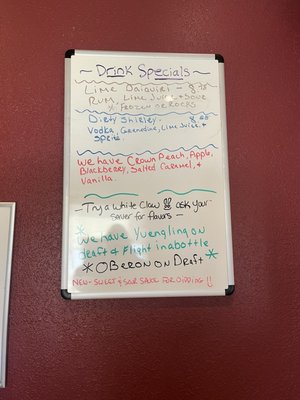 ~ Drink Specials ~
Lime Daiquiri -
Rum, Lime Juice + Sour
* Frozen or Rocks
Dirty Shirley -
Vodka, Grenadine, Lime Juice, +
Sprite.
We have Crown Peach, Apple,
Blackberry, Salted Caramel, +
Vanilla.
- Try a White Claw ask your
server for flavors -
* We have Yuengling on
draft + Flight in a bottle *
* Oberon on Draft *
New - Sweet + Sour Sauce for Dipping !!